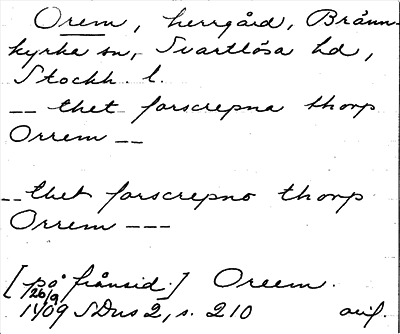 Orem, herrgård, Bränn-
kyrka sn, Svartlösa hd,
Stockh. l.
-- thet forscrepna thorp
Orrem --
-- thet forscrepno thorp
Orrem ---
[på frånsid.] Oreem.
26/9
1409 SDns 2, s. 210 avf.